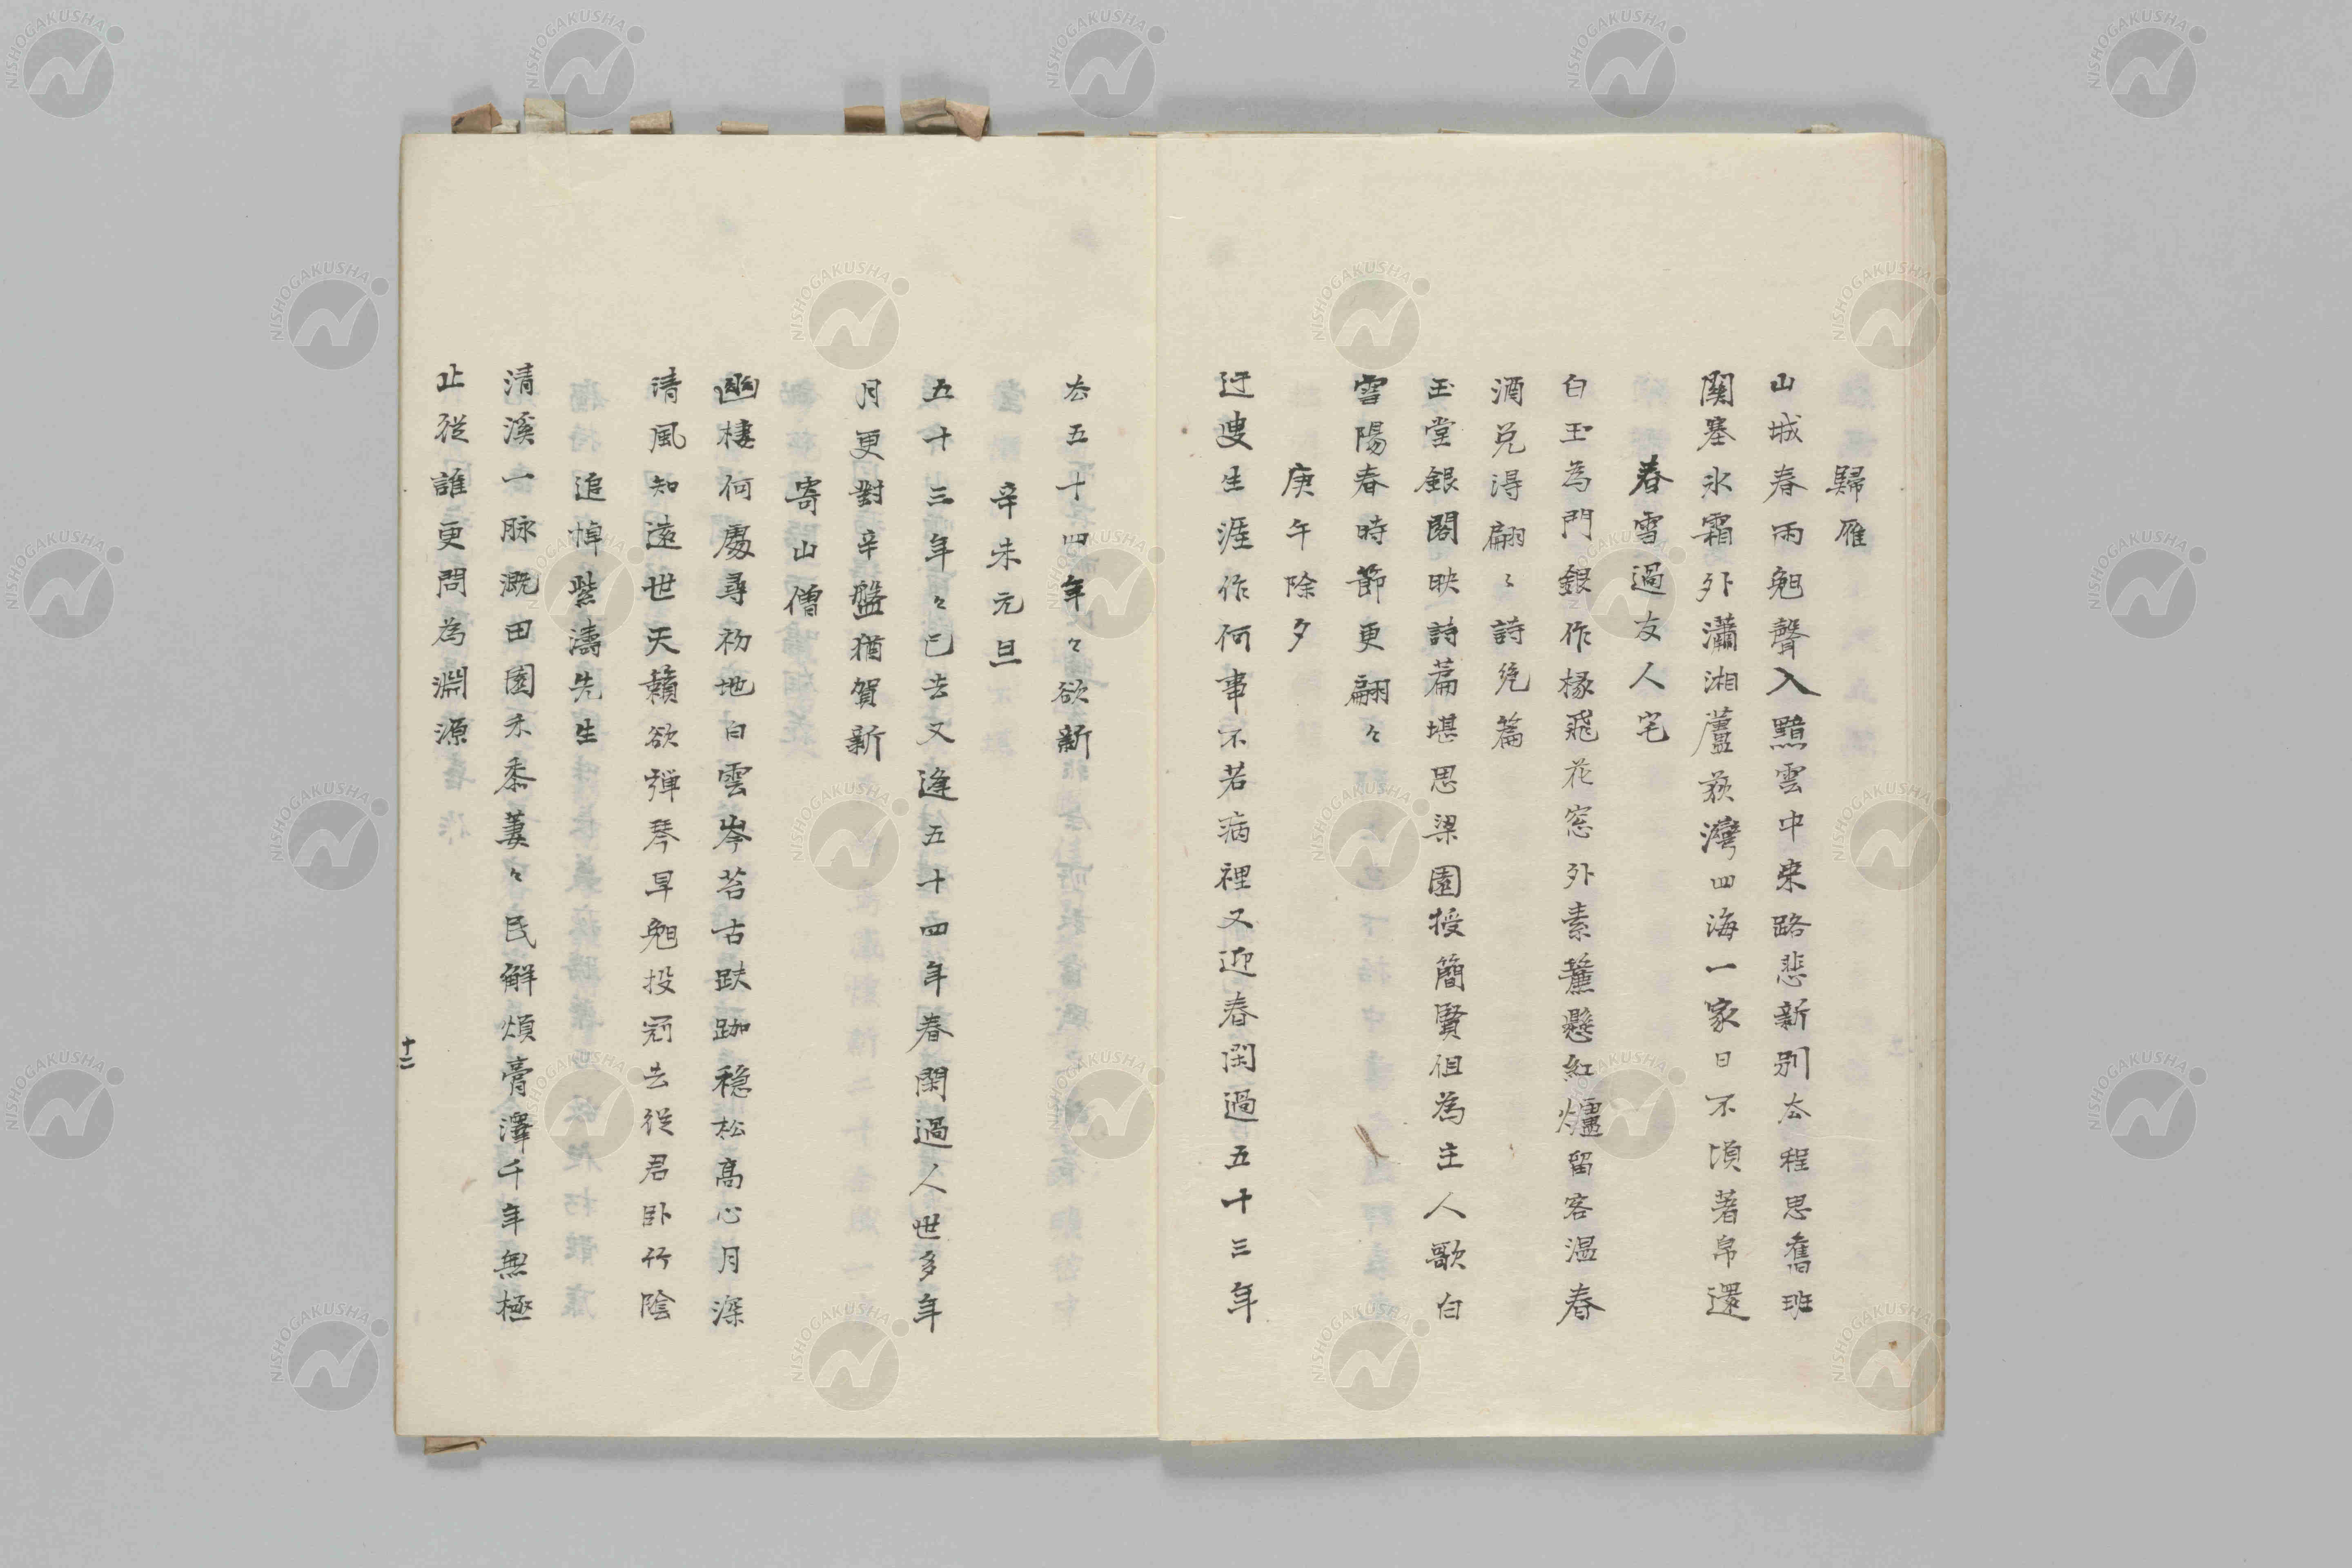 歸雁
山城春雨兔聲入黯雲中来路悲新别去程思舊班
關塞氷霜外瀟湘蘆荻灣四海一家日不須著帛還
春雪過友人宅
白玉為門銀作椽飛花窓外素簾懸紅爐留客温春
酒兔得翩〻詩絶篇
玉堂銀閣映詩篇堪思梁園授簡賢徂為主人歌白
雪陽春時節更翩々
庚午除夕
迂叟生涯作何事不若病裡又迎春閑過五十三年
去五十四年々欲新
辛未元旦
五十三年々已去又逢五十四年春閑過人世多年
月更對辛盤猶賀新
寄山僧
幽棲何處尋初地白雲岑苔古趺跏穩松高心月深
清風知遠世天籟欲弾琴早兔投冠去從君卧竹陰
追悼紫濤先生
清溪一脉溉田園禾黍萋々民解煩膏澤千年無極
止從誰更問為淵源
十二
NISHOGAKUSHA